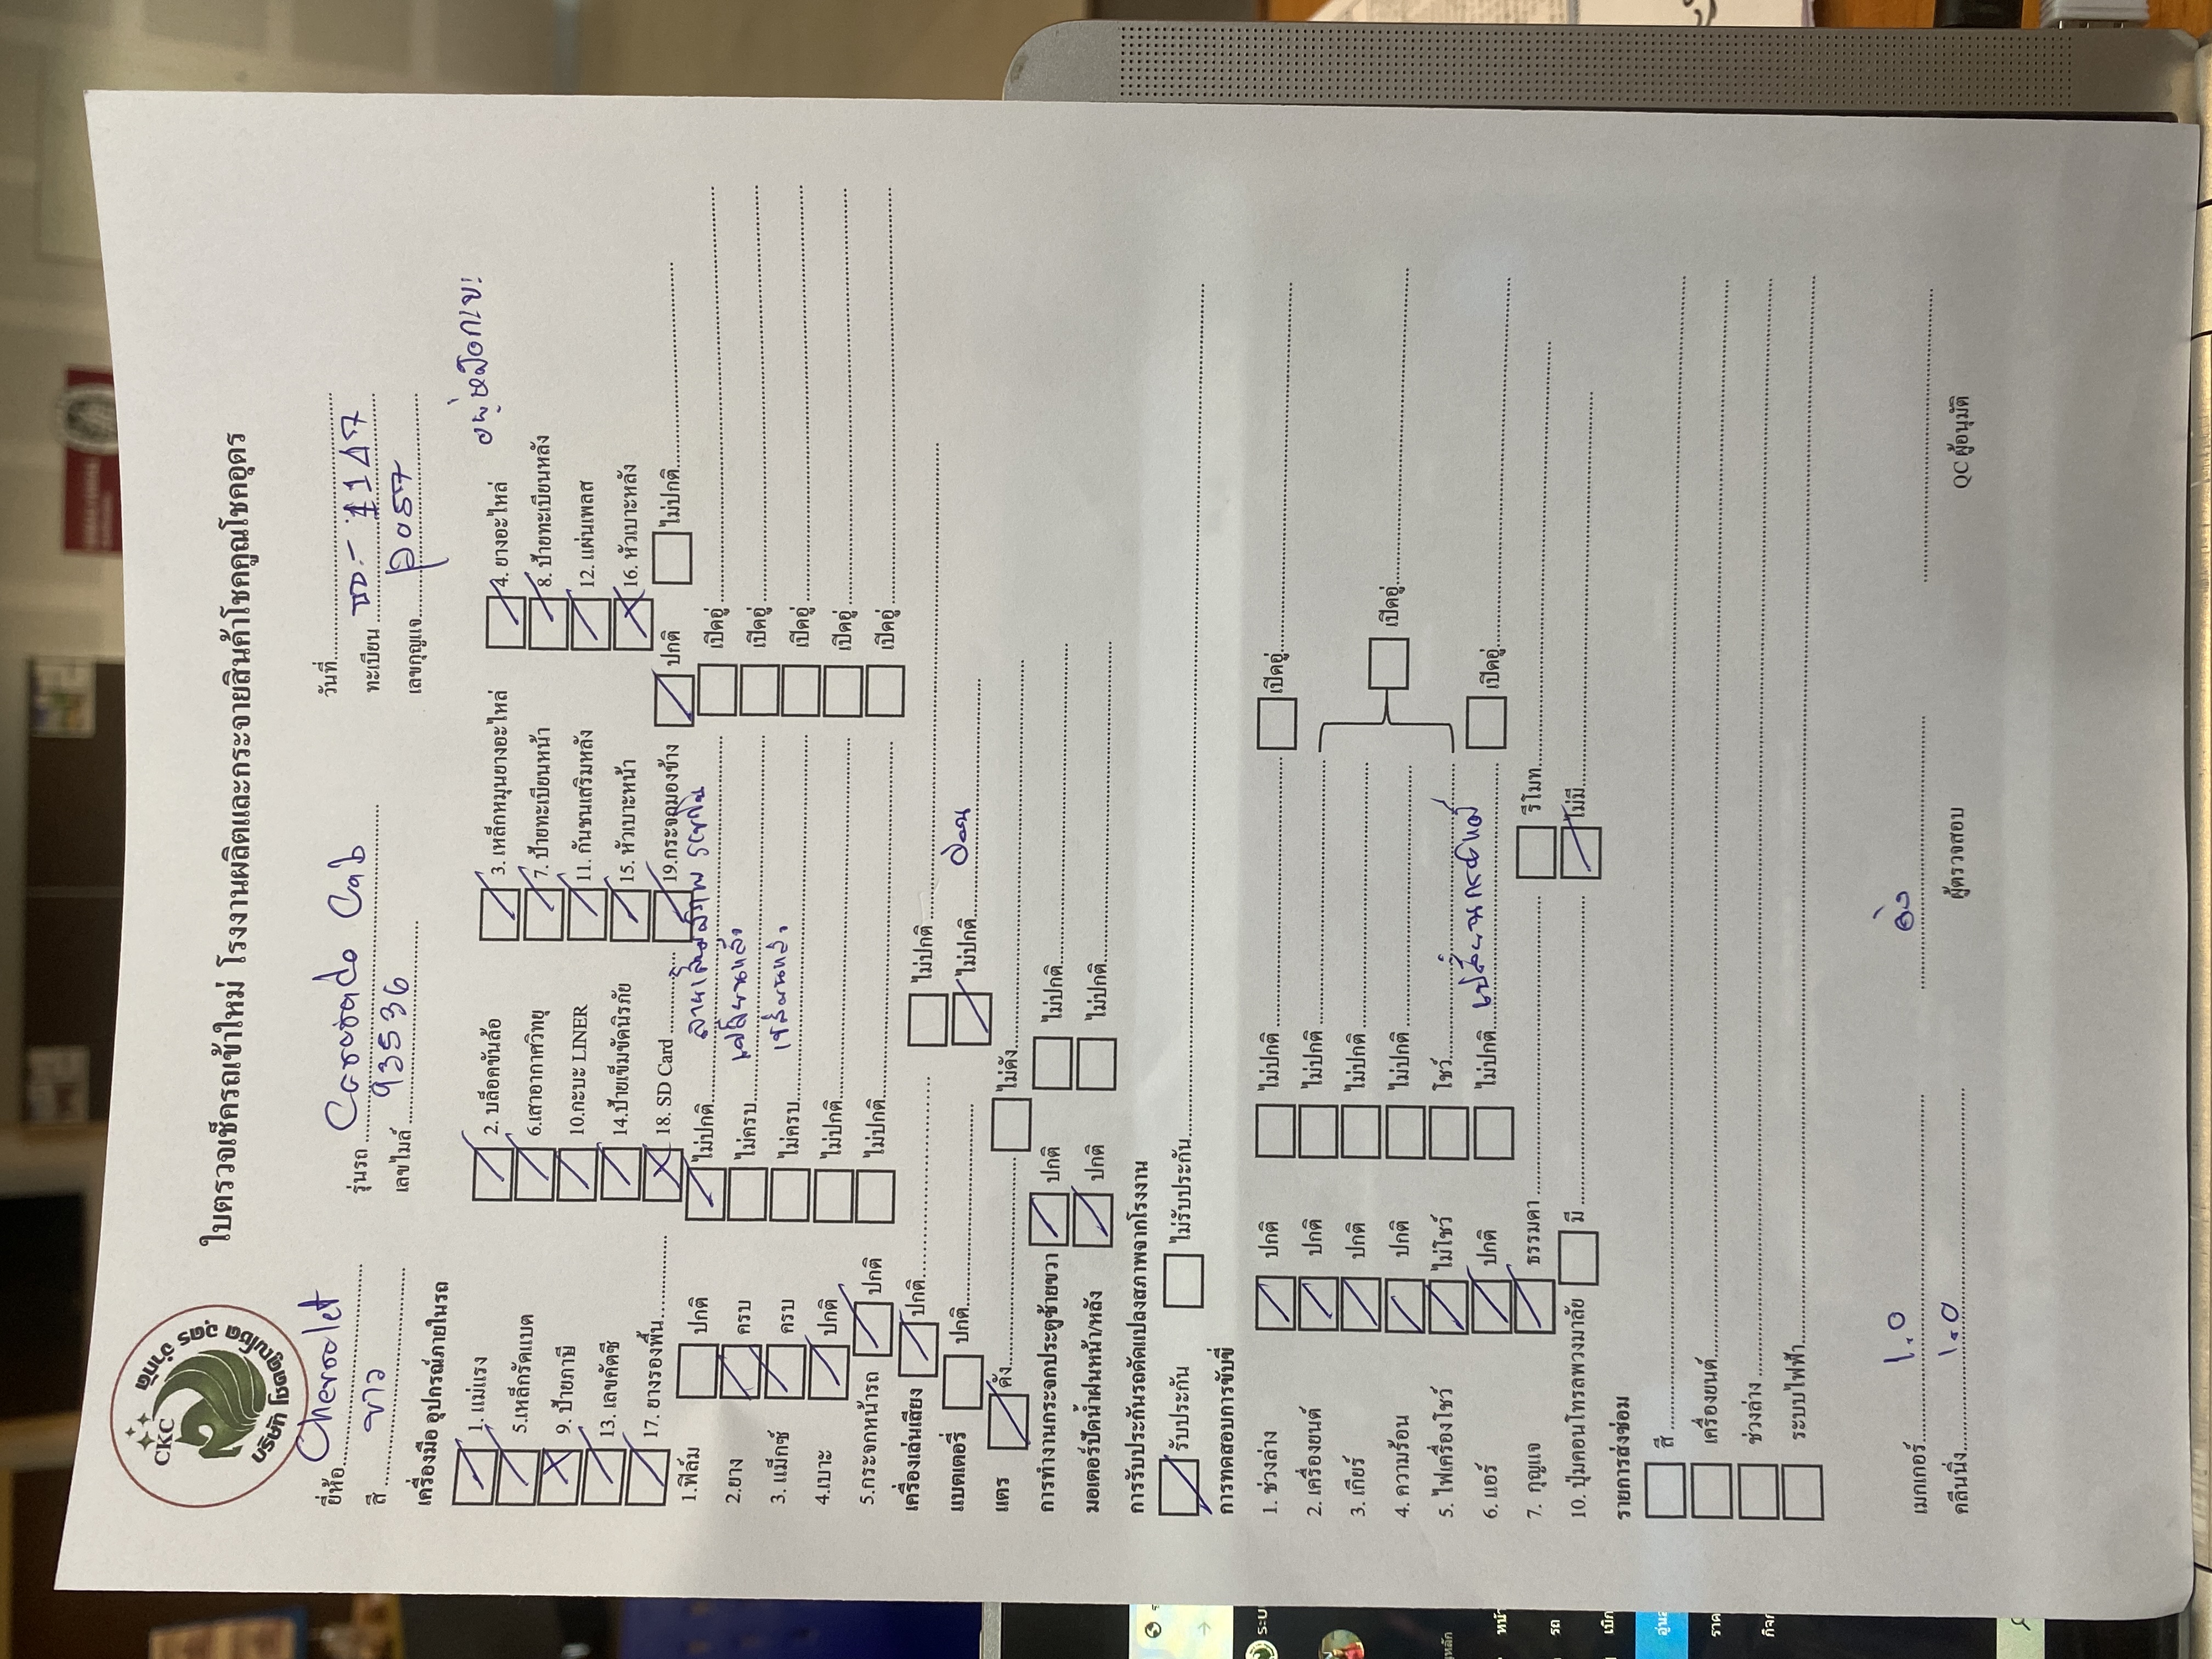 CKC
บริษัท โชคคูณโชค อุดร จำกัด
ใบตรวจเช็ครถเข้าใหม่ โรงงานผลิตและกระจายสินค้าโชคคูณโชคอุดร
ยี่ห้อ Chevrolet
วันที่
สี ขาว รุ่นรถ Corolado Cab ทะเบียน
เลขไมล์ 93536 เลขกุญแจ
เครื่องมือ อุปกรณ์ภายในรถ
1. แม่แรง 2. บล็อคขันล้อ 3. เหล็กหมุนยางอะไหล่ 4. ยางอะไหล่
5.เหล็กรัดแบต 6.เสาอากาศวิทยุ 7. ป้ายทะเบียนหน้า 8. ป้ายทะเบียนหลัง
9. ป้ายภาษี 10.กะบะ LINER 11. กันชนเสริมหลัง 12. แผ่นเพลส
13. เลขคัตซี 14.ป้ายเข็มขัดนิรภัย 15. หัวเบาะหน้า 16. หัวเบาะหลัง
17. ยางรองพื้น 18. SD Card 19.กระจกมองข้าง ปกติ ไม่ปกติ
1.ฟิล์ม ปกติ ไม่ปกติ เปิดอู่
2.ยาง ครบ ไม่ครบ เปลี่ยนแล้ว เปิดอู่
3. แม็กซ์ ครบ ไม่ครบ เปลี่ยนแล้ว เปิดอู่
4.เบาะ ปกติ ไม่ปกติ เปิดอู่
5.กระจกหน้ารถ ปกติ ไม่ปกติ เปิดอู่
เครื่องเล่นเสียง ปกติ ไม่ปกติ
แบตเตอรี่ ปกติ ไม่ปกติ อ่อน
แตร ดัง ไม่ดัง
การทำงานกระจกประตูซ้ายขวา ปกติ ไม่ปกติ
มอเตอร์ปัดน้ำฝนหน้า/หลัง ปกติ ไม่ปกติ
การรับประกันรถดัดแปลงสภาพจากโรงงาน
รับประกัน ไม่รับประกัน
การทดสอบการขับขี่
1. ช่วงล่าง ปกติ ไม่ปกติ เปิดอู่
2. เครื่องยนต์ ปกติ ไม่ปกติ
3. เกียร์ ปกติ ไม่ปกติ เปิดอู่
4. ความร้อน ปกติ ไม่ปกติ
5. ไฟเครื่องโชว์ ไม่โชว์ โชว์
6. แอร์ ปกติ ไม่ปกติ เปิดอู่
7. กุญแจ ธรรมดา รีโมท
10. ปุ่มคอนโทรลพวงมาลัย มี ไม่มี
รายการส่งซ่อม
สี
เครื่องยนต์
ช่วงล่าง
ระบบไฟฟ้า
เมกเกอร์ 1.0
คลีนนิ่ง 1.0 ผู้ตรวจสอบ QC ผู้อนุมัติ